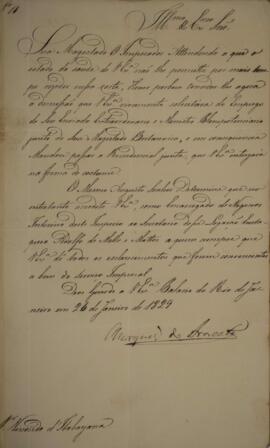 Nº 18
Illmo e Exmo Snr.
Sua Magestade O Imperador Attendendo a que o
estado da saude de V. Exª não lhe permitte por mais tem-
po residir nessa Corte, Houve por bem conceder-lhe agora
a demissão que V. Exª novamente solicitara do Emprego
de Seu Enviado Extraordinario e Ministro Plenipotenciario
junto de Sua Magestade Britannica, e em consequencia
Mandou passar a Credencial junta, que V. Exª entregará
na forma do costume.
O Mesmo Augusto Senhor Determina que
apresente V. Exª, como Encarregado de Negocios
Interino deste Imperio ao Secretario da Legação Eusta-
quio Adolfo de Mello e Mattos a quem cumpre que
V. Exª dê todos os esclarecimentos que forem convenientes
a bem do serviço Imperial.
Deos Guarde a V. Exª Palacio do Rio de Ja-
neiro em 26 de Janeiro de 1829
Marquez de Aracaty
Sr. Visconde d'Itabayana